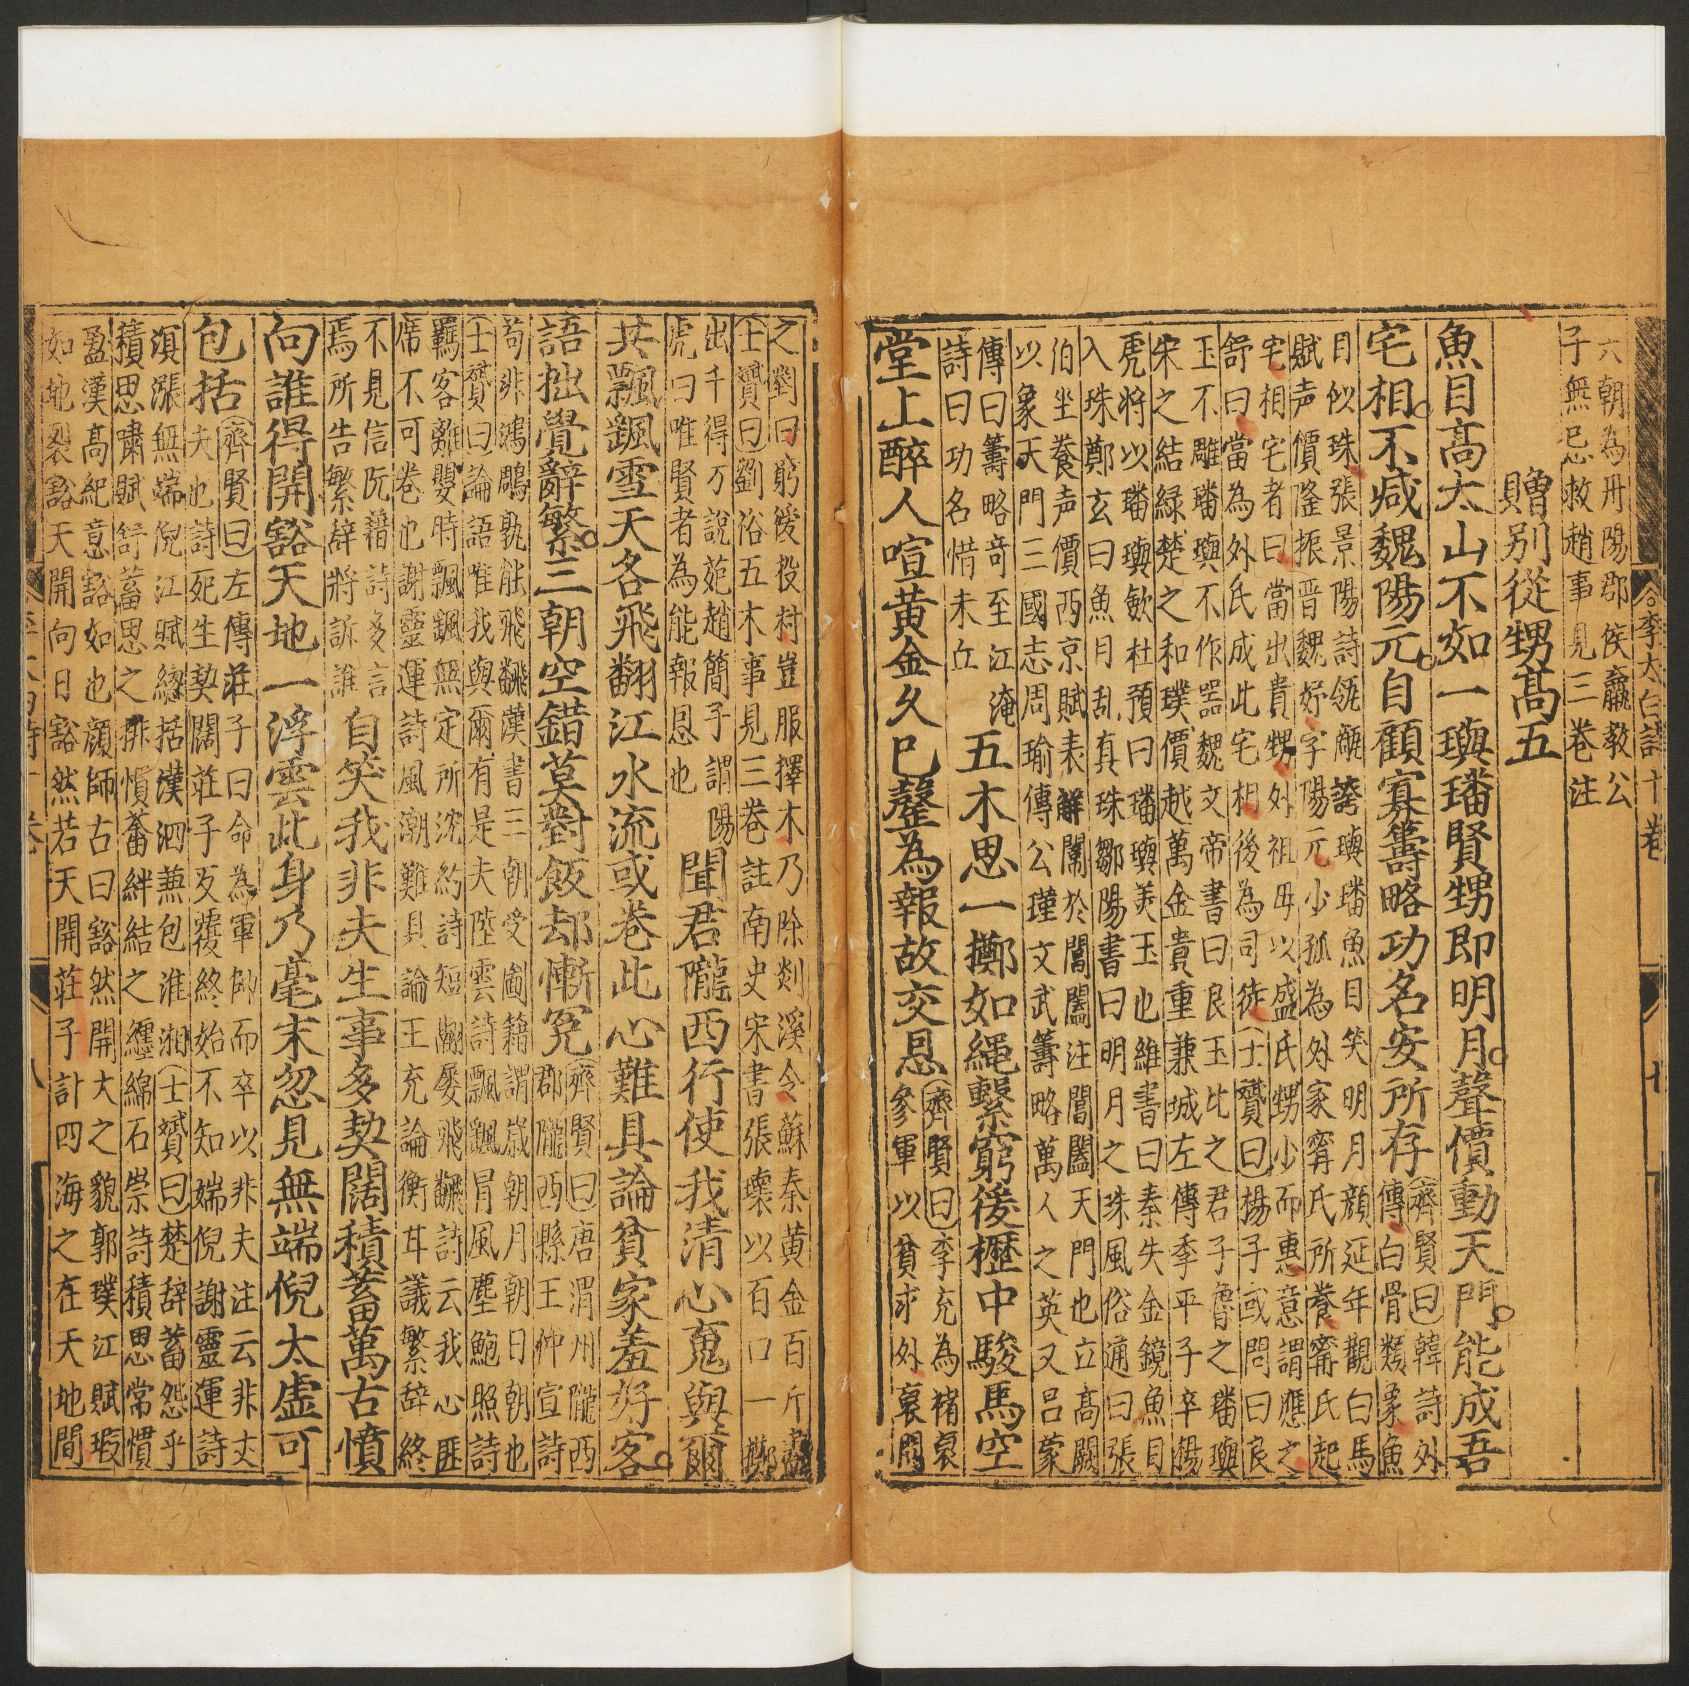 李太白詩十卷
七
六朝為丹陽郡侯嬴教公
子無忌救趙事見三巻注
贈別從甥髙五
魚目髙太山不如一璵璠賢甥即明月聲價動天門能成吾
宅相不減魏陽元自顧寡籌略功名安所存
齊賢曰韓詩外
傳白骨類象魚
目似珠張景陽詩瓴甋誇璵璠魚目笑明月顔延年觀白馬
賦声價隆振晋魏妤字陽元少孤為外家寗氏所養寗氏起
宅相宅者曰當出貴甥外祖毋以盛氏甥少而惠意謂應之
舒曰當為外氏成此宅相後為司徒士贇曰楊子或問曰良
玉不雕璠璵不作噐魏文帝書曰良玉比之君子魯之璠璵
宋之結緑楚之和璞價越萬金貴重兼城左傳季平子卒楊
虎将以璠璵歛杜預曰璠璵羙玉也維書曰秦失金鏡魚目
入珠鄭玄曰魚月乱真珠鄒陽書曰明月之珠風俗通曰張
泊坐養声價西京賦表觧闈於閶闔注閶闔天門也立髙闕
以象天門三國志周瑜傳公瑾文武籌略萬人之英又呂蒙
傳曰籌略竒至江淹
詩曰功名惜未立
五木思一擲如繩繫窮猨櫪中駿馬空
堂上醉人喧黄金乆巳罄為報故交恩
齊賢曰李充為禇裒
參軍以貧求外裒問
之對曰窮猨投村豈服擇木乃除剡溪令蘇秦黄金百斤盡
士贇曰劉裕五木事見三巻註南史宋書張瓌以百口一擲
出千得万說苑趙簡子謂陽
虎曰唯賢者為能報恩也
聞君隴西行使我清心䰟與爾
共飄颻雪天各飛翻江水流或巻此心難具論貧家羞好客
語拙覺辭繁三朝空錯莫對飯却慚𡨚
齊賢曰唐渭州隴西
郡隴西縣王仲宣詩
苟非鴻鵰孰能飛飜漢書三朝受圖籍謂歳朝月朝日朝也
士贇曰論語唯我與爾有是夫陸雲詩飄颻冒風塵鮑照詩
羈客離嬰時飄颻無定所沈約詩短翮屡飛飜詩云我心匪
席不可巻也謝靈運詩風潮難具論王充論衡耳議繁辞終
不見信阮藉詩多言
焉所告繁辞將訴誰
自笑我非夫生事多契闊積蓄萬古憤
向誰得開豁天地一浮雲此身乃毫末忽見無端倪太虚可
包括
齊賢曰左傳莊子曰命為軍帥而卒以非夫注云非丈
夫也詩死生契闊莊子反覆終始不知端倪謝靈運詩
溟漲無端倪江賦緫括漢泗兼包淮湘士贇曰楚辞蓄怨乎
積思嘯賦舒蓄思之悱憤蓄絆結之纒綿石崇詩積思常憤
盈漢髙紀意豁如也顔師古曰豁然開大之貌郭璞江賦瑕
如地裂豁天開向日豁然若天開莊子計四海之在天地間